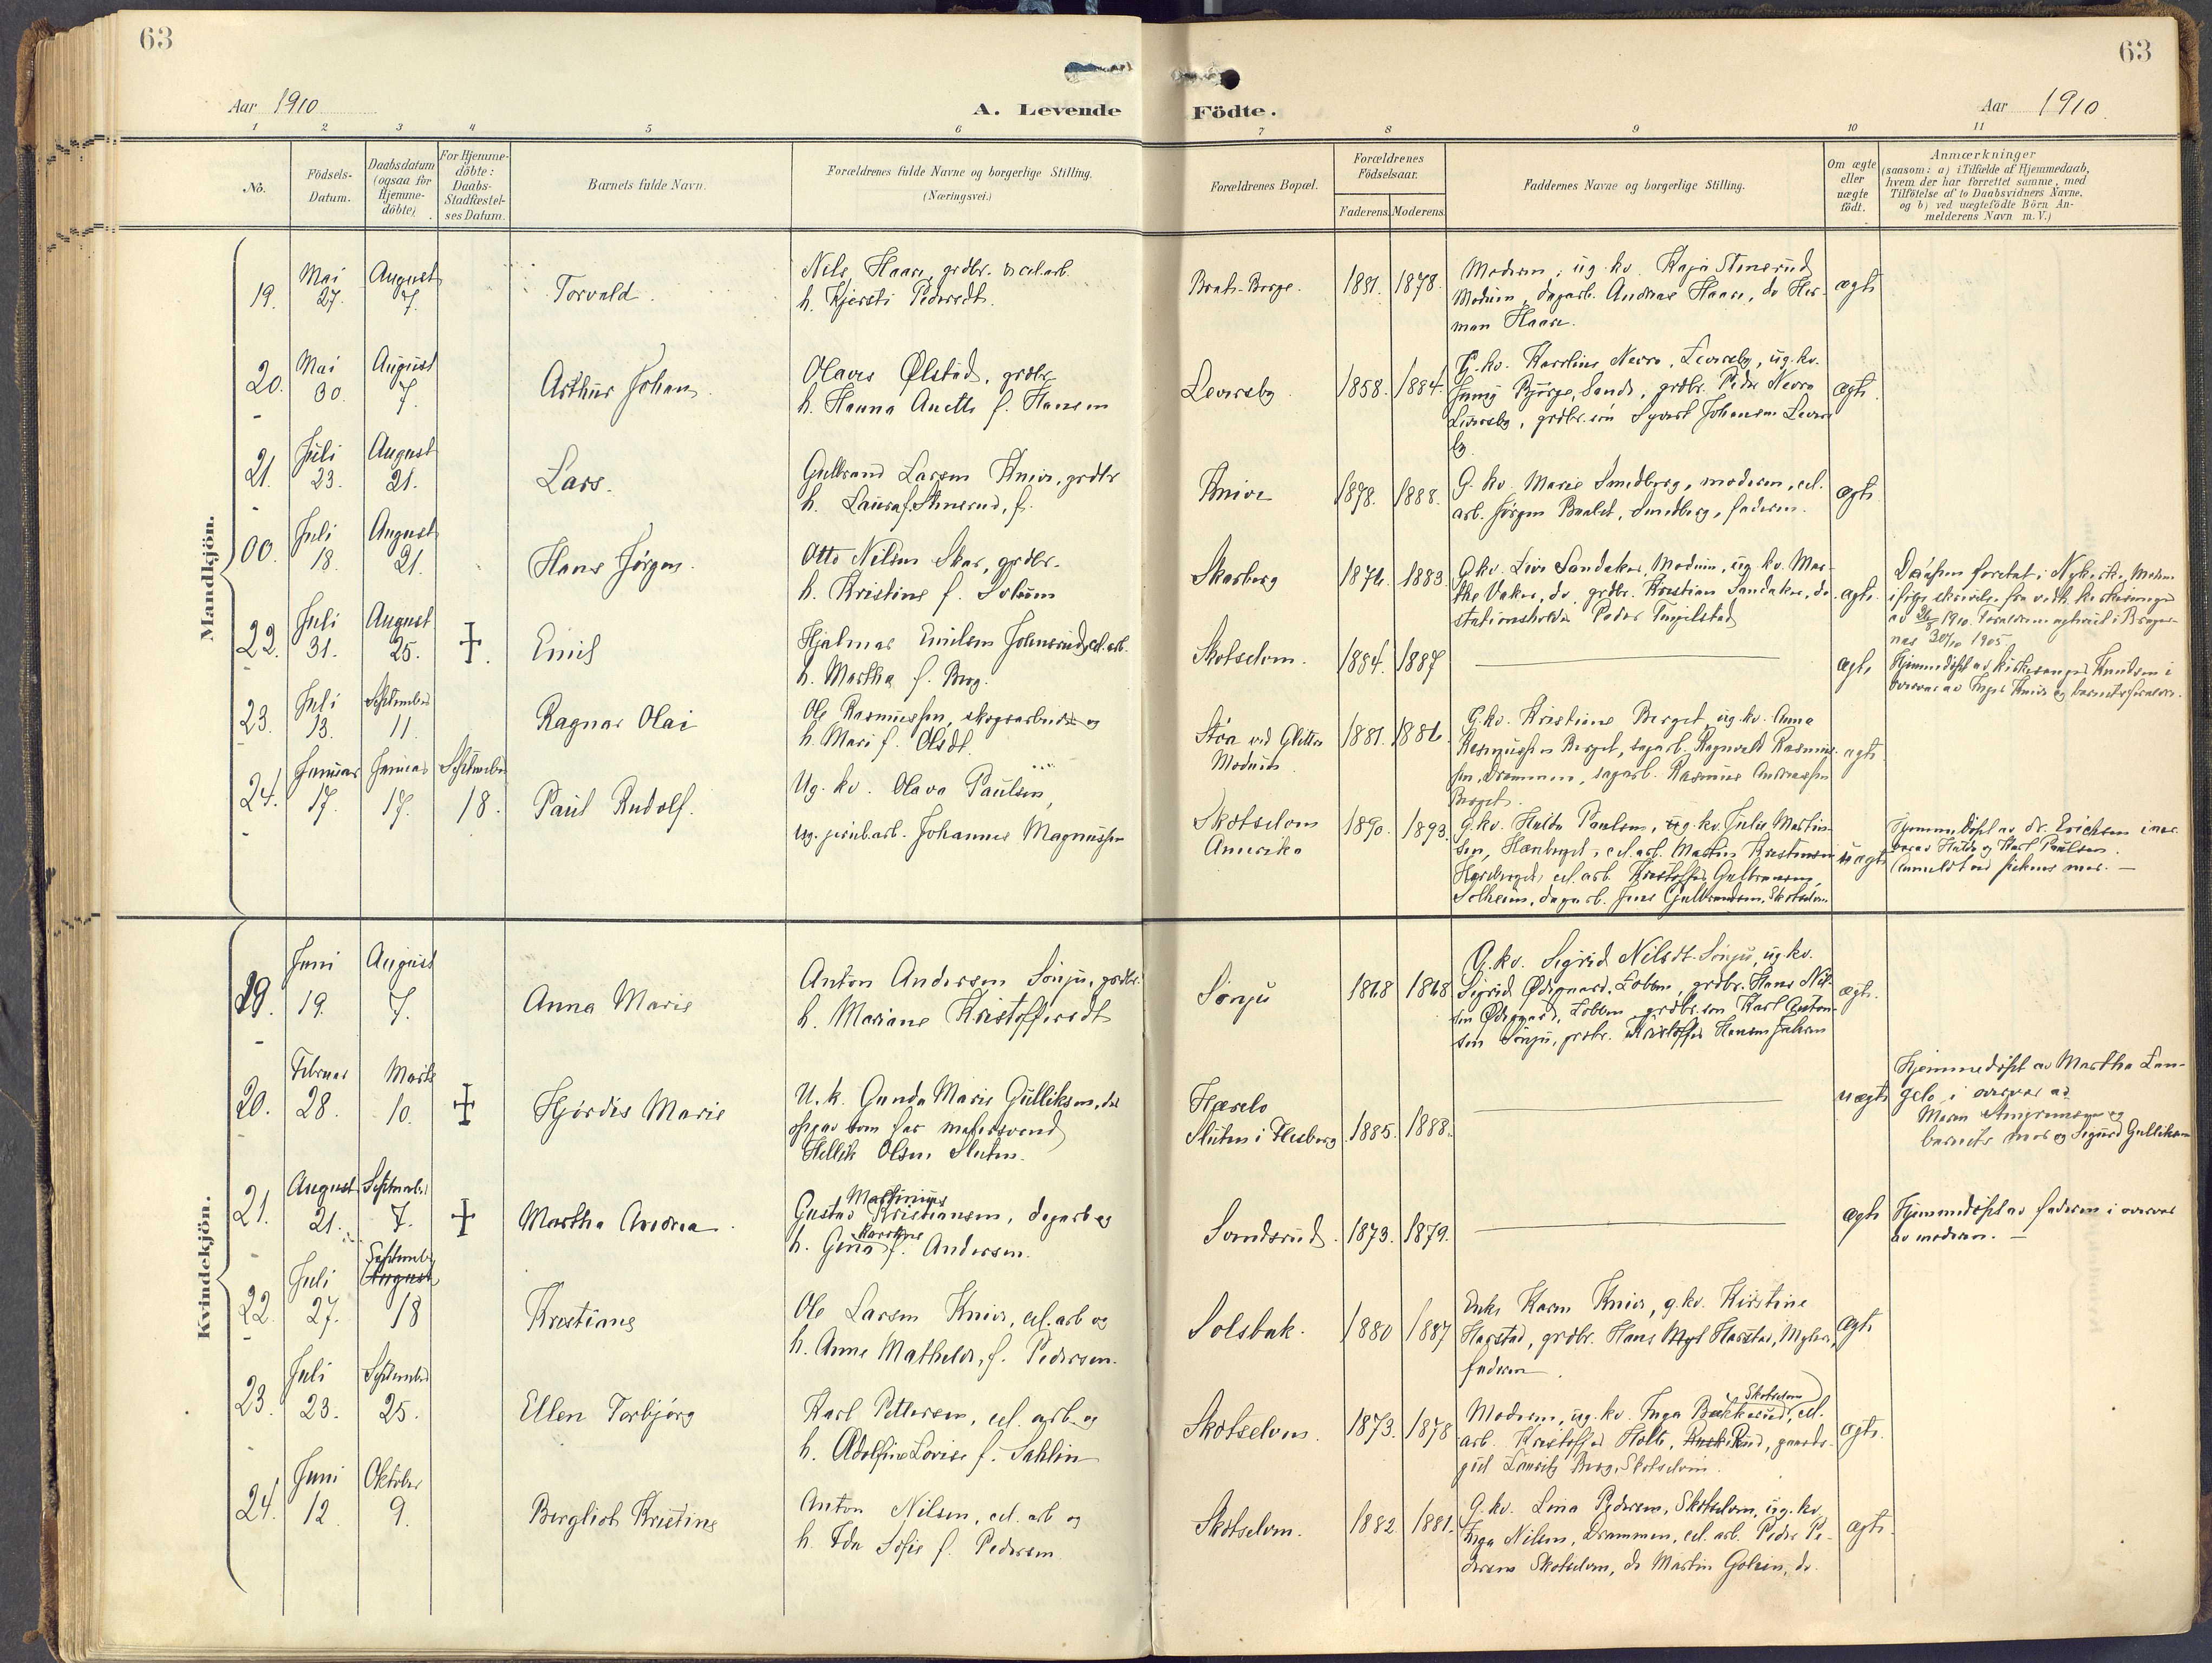 63
63
Aar 1910
A. Levende Födte.
Aar 1910
1 2 3 4 5 6 7 8 9 10 11
No.
Födsels-Datum.
Daabsdatum (ogsaa for Hjemme-döbte)
For Hjemme-döbte: Daabs-Stadfæstel-ses Datum.
Barnets fulde Navn.
Forældrenes fulde Navne og borgerlige Stilling.
(Næringsvei.)
Forældrenes Bopæl.
Forældrenes Födselsaar.
Faderens. Moderens.
Faddernes Navne og borgerlige Stilling.
Om ægte eller uægte födt.
Anmærkninger
(saasom: a) i Tilfælde af Hjemmedaab,
hvem der har forrettet samme, med
Tilföielse af to Daabsvidners Navne,
og b) ved uægtefödte Börn An-
melderens Navn m.V.)
Mandkjön.
19. Mai 27. August 7. Torvald.
Nils Haare, grdbr. & cel.arb.
h. Kjersti Pedersdt.
1881. 1878.
Moderen, ug. kv. Kaja Stenerud
Modum, dagarb. Andreas Haare, do Her-
man Haare.
ægte
20. Mai 30. August 7. Arthur Johan.
Olaves Ølstad, grdbr.
h. Hanna Anette f. Hansen
Leversby. 1858. 1884.
ægte.
21. Juli 23. August 21. Lars.
Gulbrand Larsen Knive, grdbr
h. Laura f. Stenerud, f.
Knive 1878. 1888.
G. kv. Marie Smedberg, moderen, cel.
arb. Jörgen Smedberg, faderen.
ægte
00. Juli 18. August 21. Hans Jörgen.
Otto Nilsen Skar, grdbr.
h. Kristine f. Solum
Skarberg 1876. 1883.
G.kv. Live Sandaker, Modum, ug. kv. Mar-
the Vaker, do, grdbr. Kristian Sandaker, do
stationsholder Peder
ægte.
22. Juli 31. August 25. Emil
Hjalmar Emilsen Johnsrud, cel.arb.
h. Martha f. Berg.
Skotselven. 1884. 1887
ægte
Hjemmedøpt av kirkesanger Knudsen i
23. Juli 13. September 11. Ragnar Olai
Ole Rasmussen, skogsarbeider og
h. Mari f. Olsdt.
Modum 1881. 1886.
G.kv. Kristiane Berget, ug. kv. Anna
Rasmussen Berget, sagarb. Ragnvald Rasmus-
sen, Drammen, sagarb. Rasmus Andreassen
Berget.
ægte
24. Januar 17. Januar 17. September 18. Paul Rudolf.
Ug. kv. Olava Paulsen,
ug. jernb.arb. Johannes Magnussen
Skotselven
Amerika
1890. 1893.
G.kv. Hulda Paulsen, ug. kv. Julie Martin-
sen, cel. arb. Martin Kristensen
cel. arb. Kristoffer Gulbrandsen,
Solheim, dagarb. Jens Gulbrandsen, Skotselven
uægte
Hjemmedøpt av dr. Erichsen i nær-
vær av Hulda og Karl Paulsen.
Anmeldt av pikens mor. —
Kvindekjön.
19. Juni 19. August 7. Anna Marie
Anton Andersen Sönju, grdbr.
h. Mariane Kristoffersdt
Sönju 1868 1868
G.kv. Sigrid Nilsdt. Sönju, ug. kv.
Sigrid Ødegaard, Lobben, grdbr. Hans Nil-
sen Ødegaard, Lobben, grdbr. sön Karl Anton-
sen Sönju, grdbr. Kristoffer Hansen
ægte.
20. Februar 28. Marts 10. Hjördis Marie
U. k. Gunda Marie Gulliksen, der
opgav som far
Hellik Olsen Sluten.
Hærelo
Sluten i Flesberg 1885. 1888.
uægte
Hjemmedøpt av Martha Lan-
gelo i overvær av
barnets mor og Sigurd Gulliksen
21. August 21. September 7. Martha Andrea.
Martinius
Gustav Kristiansen, dagarb og
Karoline
h. Gina f. Andersen.
Sandsrud. 1873. 1879.
ægte
Hjemmedøpt av faderen i overvær
av moderen. —
22. Juli 27. September August 18 Kristiane
Ole Larsen Knive, cel. arb og
h. Anne Mathilde, f. Pedersen.
Solsbak. 1880 1887
Enke Karen Knive, g. kv. Kirstine
Harstad, grdbr. Hans Harstad,
faderen.
ægte
23. Juli 23. September 25. Ellen Torbjörg
Karl Pettersen, cel. arb. og
h. Adolfine Lovise f. Sahlin
Skotselven. 1873. 1878
Skotselven
Moderen, ug. kv. Inga Bakkerud, cel.
arb. Kristoffer Holte, Rud, gaards-
gut Lauritz Berg, Skotselven.
ægte.
24. Juni 12 Oktober 9. Bergliot Kristine
Anton Nilsen, cel. arb og
h. Ida Sofie f. Pedersen
Skotselven. 1882. 1881.
G. kv. Lina Pedersen, Skotselven, ug. kv.
Inga Nilsen, Drammen, cel. arb. Peder Pe-
dersen Skotselven, do Martin Golsen, do.
ægte